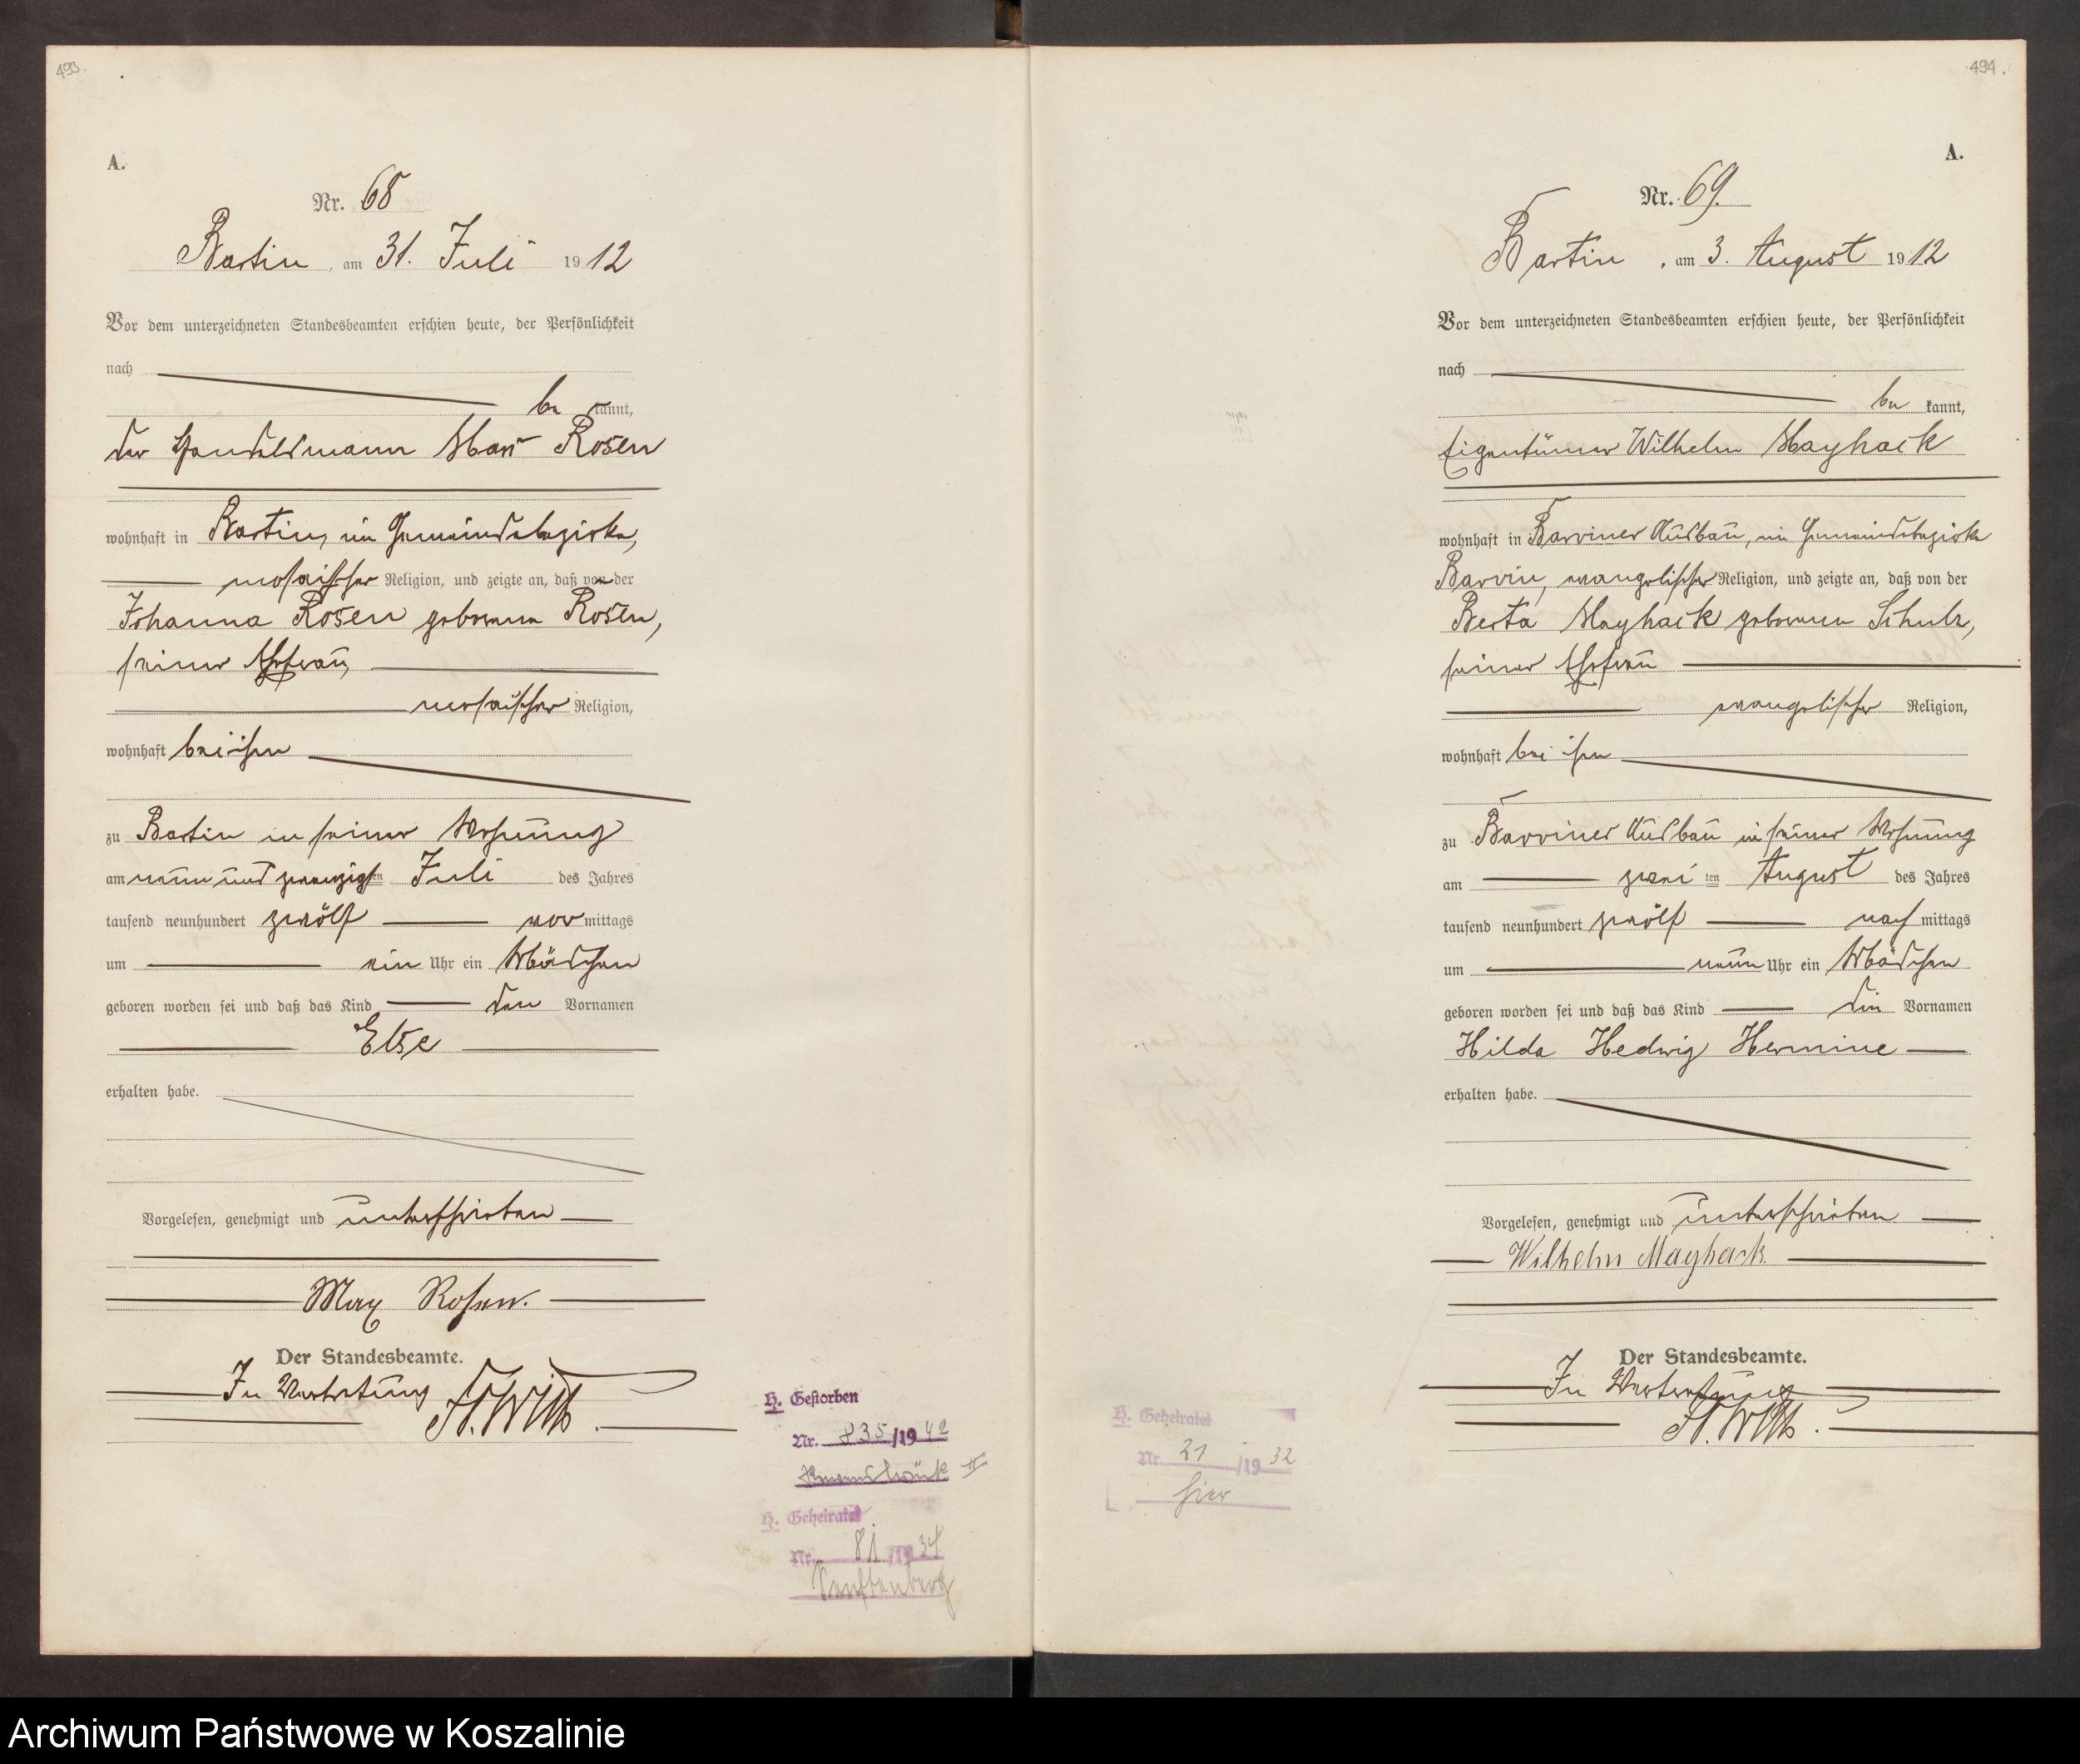 493.
A.
Nr. 68
Bartin, am 31. Juli 1912
Vor dem unterzeichneten Standesbeamten erschien heute, der Persönlichkeit
nach
be kannt,
der Handelsmann Max Rosen
wohnhaft in Bartin, im Gemeindebezirke,
mosaischer Religion, und zeigte an, daß von der
Johanna Rosen geborenen Rosen,
seiner Ehefrau,
mosaischer Religion,
wohnhaft bei ihm
zu Bartin in seiner Wohnung
am neun und zwanzigsten Juli des Jahres
tausend neunhundert zwölf vor mittags
um ein Uhr ein Mädchen
geboren worden sei und daß das Kind den Vornamen
Else
erhalten habe.
Vorgelesen, genehmigt und unterschrieben
Max Rosen.
Der Standesbeamte.
In Vertretung
H. Gestorben
Nr. 835/1942
II
H. Geheiratet
Nr. 81/1934
494.
A.
Nr. 69.
Bartin, am 3. August 1912
Vor dem unterzeichneten Standesbeamten erschien heute, der Persönlichkeit
nach
be kannt,
Eigentümer Wilhelm Mayhack
wohnhaft in Barviner Ausbau, im Gemeindebezirke
Barvin, evangelischer Religion, und zeigte an, daß von der
Berta Mayhack geborenen Schulz,
seiner Ehefrau
evangelischer Religion,
wohnhaft bei ihm
zu Barviner Ausbau in seiner Wohnung
am zwei ten August des Jahres
tausend neunhundert zwölf nach mittags
um neun Uhr ein Mädchen
geboren worden sei und daß das Kind die Vornamen
Hilda Hedwig Hermine
erhalten habe.
Vorgelesen, genehmigt und unterschrieben
Wilhelm Mayhack
Der Standesbeamte.
In Vertretung
H. Geheiratet
Nr. 21/1932
hier
Archiwum Państwowe w Koszalinie